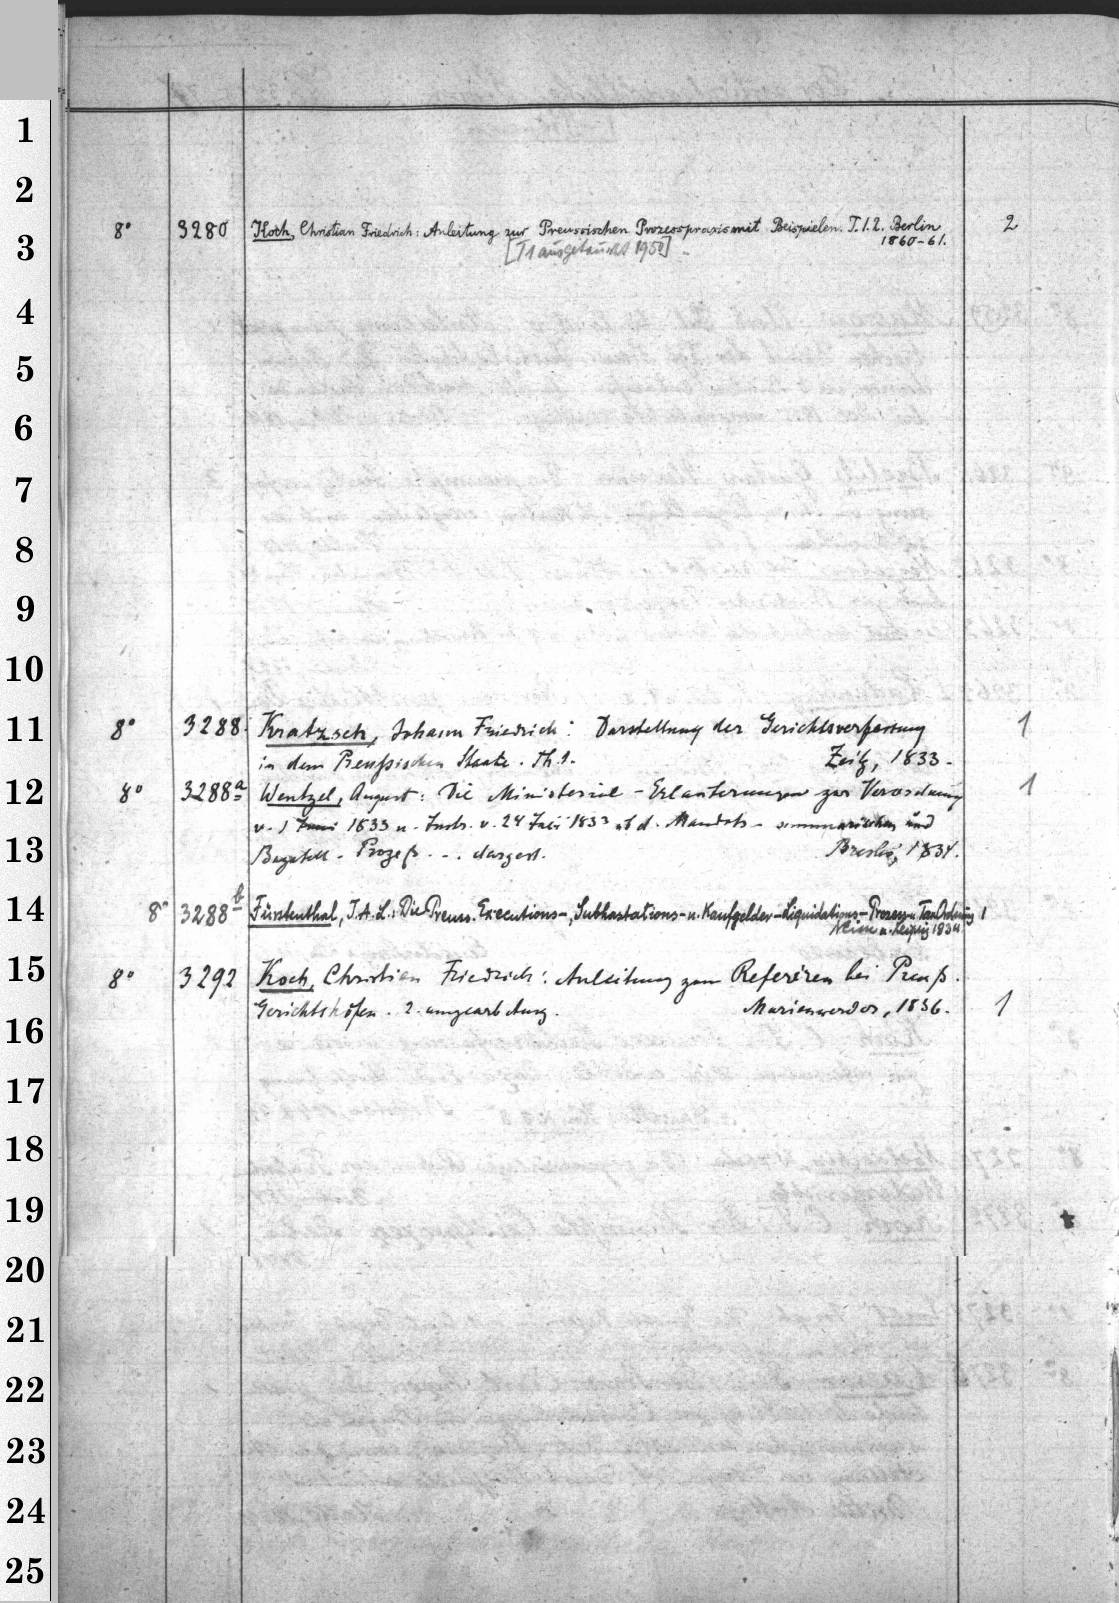 1
2
8° 3280 Koch, Christian Friedrich: Anleitung zur Preussischen Prozesspraxis mit Beispielen. T. 1.2. Berlin 2
1860-61.
3
[T1 ausgetauscht 1950]
4
5
6
7
8
9
10
11 8° 3288. Kratzsch, Johann Friedrich: Darstellung der Gerichtsverfassung 1
in dem Preußischen Staate. Th. 1. Zeitz, 1833.
12 8° 3288a Wentzel, August: Die Ministerial-Erläuterungen zur Verordnung 1
v. 1 Juni 1833 u. Instr. v. 24 Juli 1833 üb d. Mandats- summarischen und
13 Bagatell-Prozeß ... dargest. Breslau, 1834.
14 8° 3288b Fürstenthal, J. A. L.: Die Preuss. Executions-, Subhastations- u. Kaufgelder-Liquidations-Prozess- u. Tax Ordnung 1
u. Leipzig 1834
15 8° 3292 Koch, Christian Friedrich: Anleitung zum Referiren bei Preuß.
Gerichtshöfen. 2. umgearb. Ausg. Marienwerder, 1836. 1
16
17
18
19
20
21
22
23
24
25